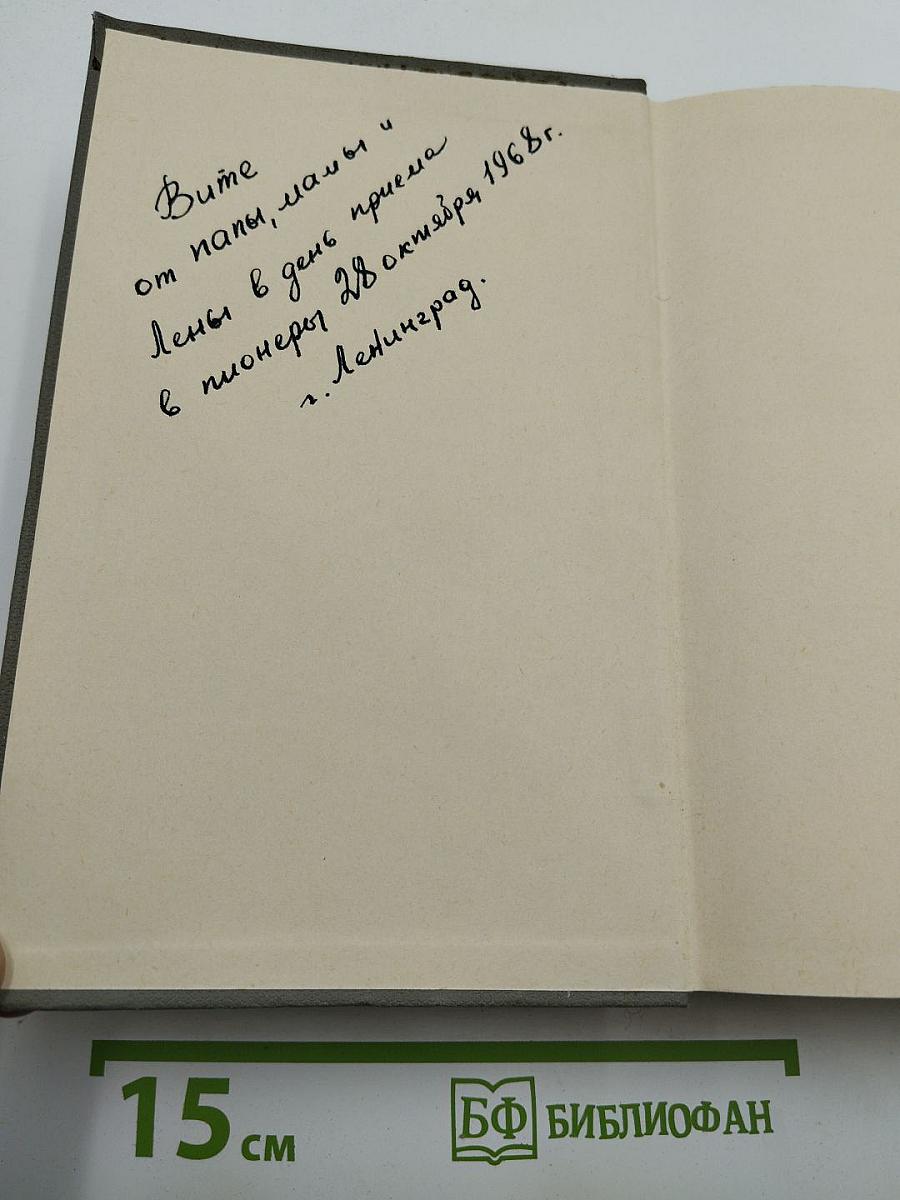 Вите
от папы, мамы и
Лены в день приема
в пионеры 28 октября 1968г.
г. Ленинград.
15 см
БФ БИБЛИОФАН